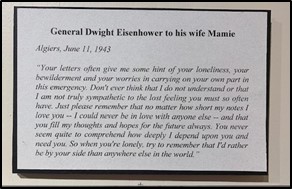 General Dwight Eisenhower to his wife Mamie
Algiers, June 11, 1943
"Your letters often give me some hint of your loneliness, your
bewilderment and your worries in carrying on your own part in
this emergency. Don't ever think that I do not understand or that
I am not truly sympathetic to the lost feeling you must so often
have. Just please remember that no matter how short my notes I
love you -- I could never be in love with anyone else -- and that
you fill my thoughts and hopes for the future always. You never
seem quite to comprehend how deeply I depend upon you and
need you. So when you're lonely, try to remember that I'd rather
be by your side than anywhere else in the world."